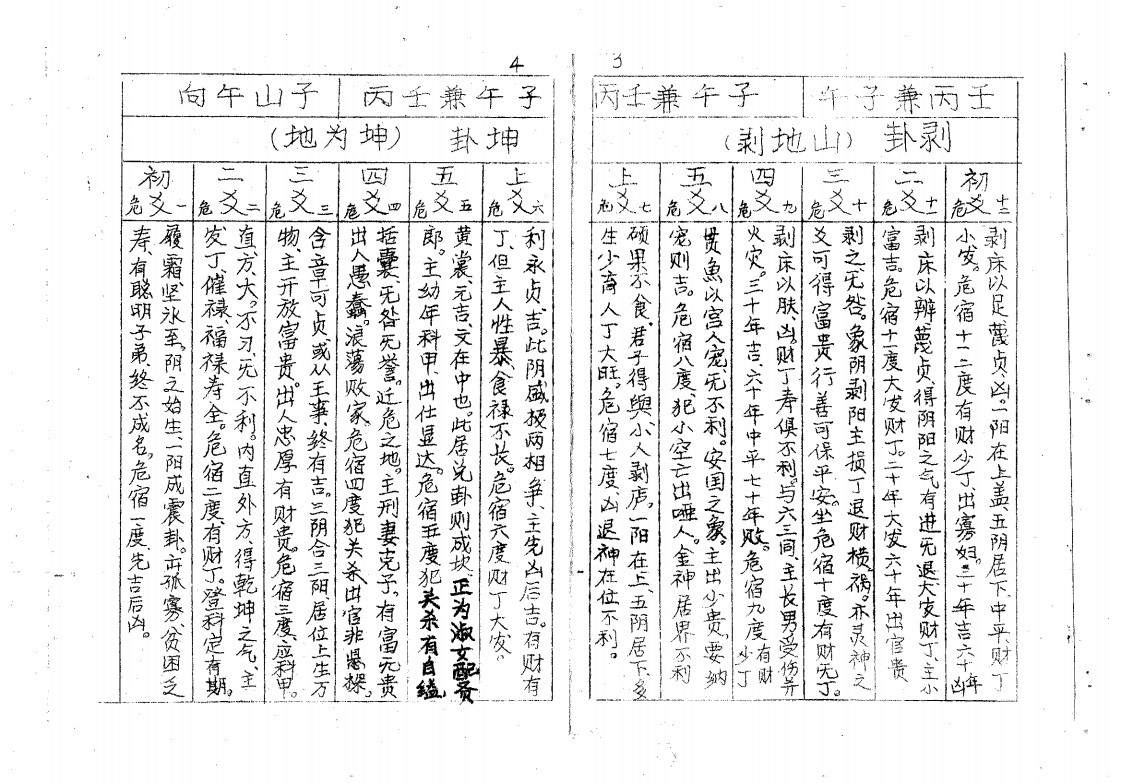 3
壬丙兼子午
子午兼壬丙
剥卦
(山地剥)
初爻
危十二
剥床以足蔑贞、凶。一阳在上盖、五阴居下、中平、财丁
小发。危宿十二度有财少丁出寡妇。二十年吉六十年凶
二爻
危十一
剥床以辨蔑贞、得阴阳之气有进无退大发财丁、主小
富吉。危宿十一度大发财丁。二十年大发六十年出官贵
三爻
危十
剥之无咎。象阴剥阳主损丁退财横祸。亦灵神之
爻可得富贵行善可保平安。坐危宿十度有财无丁。
四爻
危九
剥床以肤、凶。财丁寿俱不利。与六三同、主长男受伤并
火灾。三十年吉、六十年中平七十年败。危宿九度有财少丁
五爻
危八
贯鱼以宫人宠无不利。安国之象。主出少贵、要纳
宠则吉。危宿八度、犯小空亡出哑人。金神居界不利
上爻
危七
硕果不食、君子得舆、小人剥庐。一阳在上、五阴居下、多
生少育人丁大旺。危宿七度、凶退神在位不利。
4
子午兼壬丙
子山午向
坤卦
(坤为地)
上爻
危六
利永贞、吉。此阴盛极两相争、主先凶后吉。有财有
丁、但主人性暴、食禄不长。危宿六度财丁大发。
五爻
危五
黄裳、元吉、文在中也。此居兑卦则成坎正为淑女配贵
郎。主幼年科甲、出仕显达。危宿五度犯关杀有自缢
四爻
危四
括囊、无咎无誉。近危之地。主刑妻克子。有富无贵
出人愚蠢。浪荡败家、危宿四度犯关杀出官非悬樑。
三爻
危三
含章可贞、或从王事、终有吉。三阴合三阳、居位上生万
物、主开放富贵。出人忠厚有财贵。危宿三度、应科甲。
二爻
危二
直、方、大。不习、无不利。内直外方、得乾坤之气、主
发丁、催禄、福禄寿全。危宿二度、有财丁。登科定有期。
初爻
危一
履霜、坚冰至。阴之始生、一阳成震卦。亦孤寡、贫困乏
寿、有聪明子弟、终不成名。危宿一度、先吉后凶。